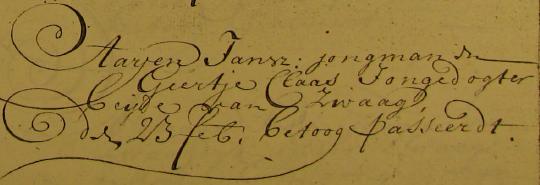 Aarjen Jansz: jongman en
Geertje Claas Jongedogter
beijde van Zwaag,
den 23 feb. betoog passeerdt.